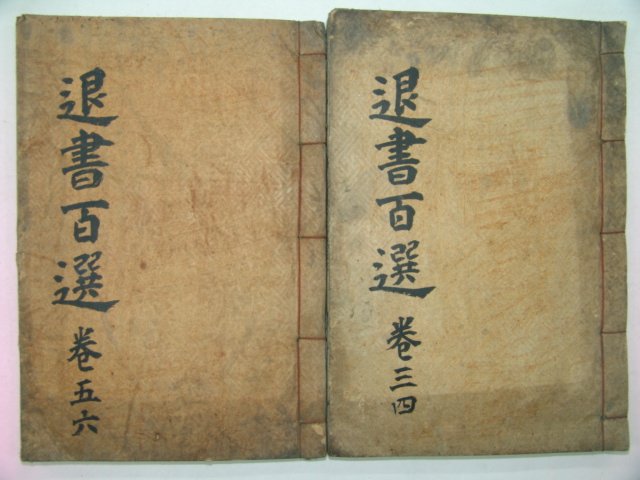 退書百選 卷五六
退書百選 卷三四